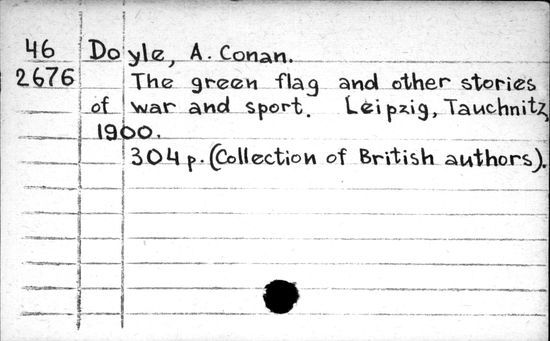 46 Doyle, A. Conan.
2676 The green flag and other stories
of war and sport. Leipzig, Tauchnitz,
1900.
304 p. (Collection of British authors).